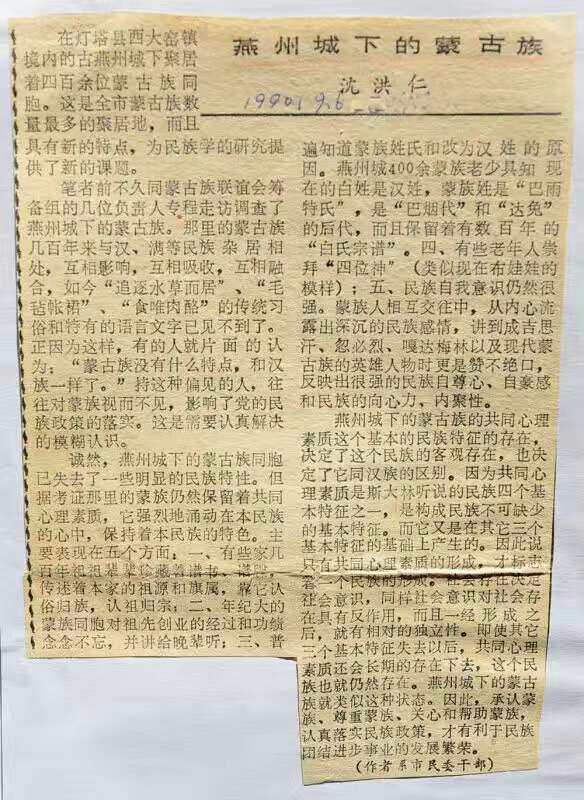 燕州城下的蒙古族
沈洪仁
1990.9.6
在灯塔县西大窑镇
境内的古燕州城下聚居
着四百余位蒙古族同
胞。这是全市蒙古族数
量最多的聚居地，而且
具有新的特点，为民族学的研究提
供了新的课题。
笔者前不久同蒙古族联谊会筹
备组的几位负责人专程走访调查了
燕州城下的蒙古族。那里的蒙古族
几百年来与汉、满等民族杂居相
处，互相影响，互相吸收，互相融
合，如今“追逐水草而居”、“毛
毡帐裙”、“食唯肉酪”的传统习
俗和特有的语言文字已见不到了。
正因为这样，有的人就片面的认
为：“蒙古族没有什么特点，和汉
族一样了。”持这种偏见的人，往
往对蒙族视而不见，影响了党的民
族政策的落实。这是需要认真解决
的模糊认识。
诚然，燕州城下的蒙古族同胞
已失去了一些明显的民族特性。但
据考证那里的蒙族仍然保留着共同
心理素质，它强烈地涌动在本民族
的心中，保持着本民族的特色。主
要表现在五个方面：一、有些家几
百年祖祖辈辈珍藏着谱书、谱
传述着本家的祖源和旗属，靠它认
俗归族，认祖归宗；二、年纪大的
蒙族同胞对祖先创业的经过和功绩
念念不忘，并讲给晚辈听；三、普
遍知道蒙族姓氏和改为汉姓的原
因。燕州城400余蒙族老少具知现
在的白姓是汉姓，蒙族姓是“巴雨
特氏”，是“巴烟代”和“达兔”
的后代，而且保留着有数百年的
“白氏宗谱”。四、有些老年人崇
拜“四位神”（类似现在布娃娃的
模样）；五、民族自我意识仍然很
强。蒙族人相互交往中，从内心流
露出深沉的民族感情，讲到成吉思
汗、忽必烈、嘎达梅林以及现代蒙
古族的英雄人物时更是赞不绝口，
反映出很强的民族自尊心、自豪感
和民族的向心力、内聚性。
燕州城下的蒙古族的共同心理
素质这个基本的民族特征的存在，
决定了这个民族的客观存在，也决
定了它同汉族的区别。因为共同心
理素质是斯大林听说的民族四个基
本特征之一，是构成民族不可缺少
的基本特征。而它又是在其它三个
基本特征的基础上产生的。因此说
只有共同心理素质的形成，才标志
着一个民族的形成。社会存在决定
社会意识，同样社会意识对社会存
在具有反作用，而且一经形成之
后，就有相对的独立性。即使其它
三个基本特征失去以后，共同心理
素质还会长期的存在下去，这个民
族也就仍然存在。燕州城下的蒙古
族就类似这种状态。因此，承认蒙
族、尊重蒙族、关心和帮助蒙族，
认真落实民族政策，才有利于民族
团结进步事业的发展繁荣。
（作者系市民委干部）